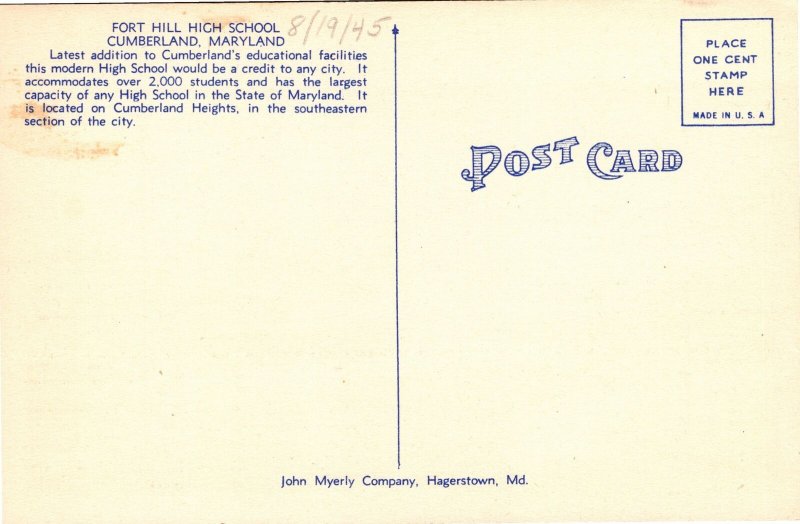 FORT HILL HIGH SCHOOL 8/19/45
CUMBERLAND, MARYLAND
Latest addition to Cumberland's educational facilities
this modern High School would be a credit to any city. It
accommodates over 2,000 students and has the largest
capacity of any High School in the State of Maryland. It
is located on Cumberland Heights, in the southeastern
section of the city.
PLACE
ONE CENT
STAMP
HERE
MADE IN U. S. A
POST CARD
John Myerly Company, Hagerstown, Md.